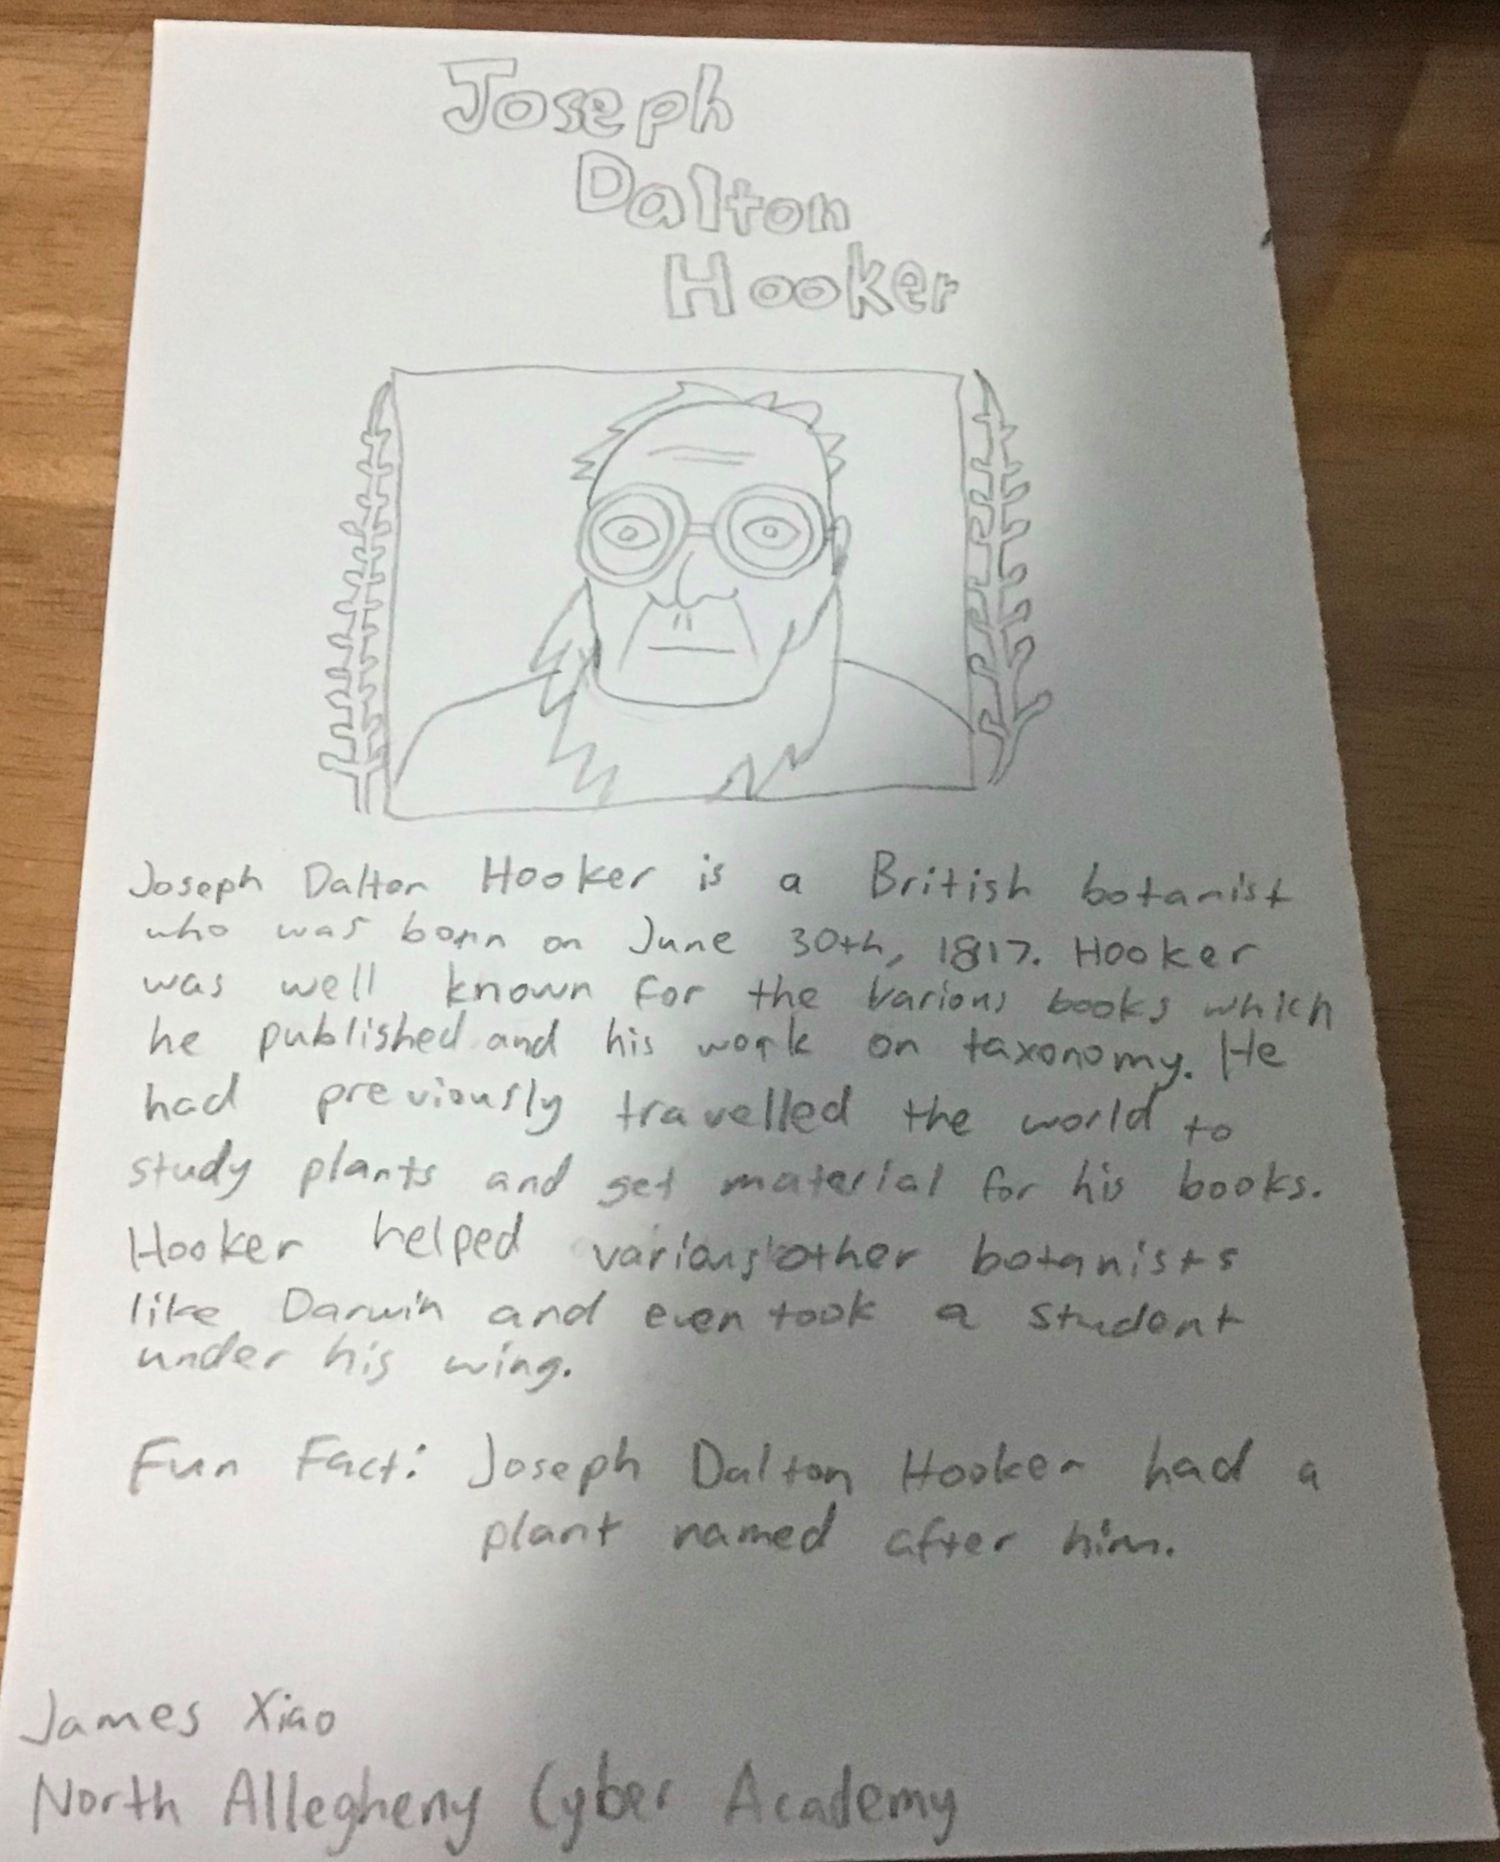 Joseph
Dalton
Hooker
Joseph Dalton Hooker is a British botanist
who was born on June 30th, 1817. Hooker
was well known for the various books which
he published and his work on taxonomy. He
had previously travelled the world to
study plants and get material for his books.
Hooker helped various other botanists
like Darwin and even took a student
under his wing.
Fun Fact: Joseph Dalton Hooker had a
plant named after him.
James Xiao
North Allegheny Cyber Academy